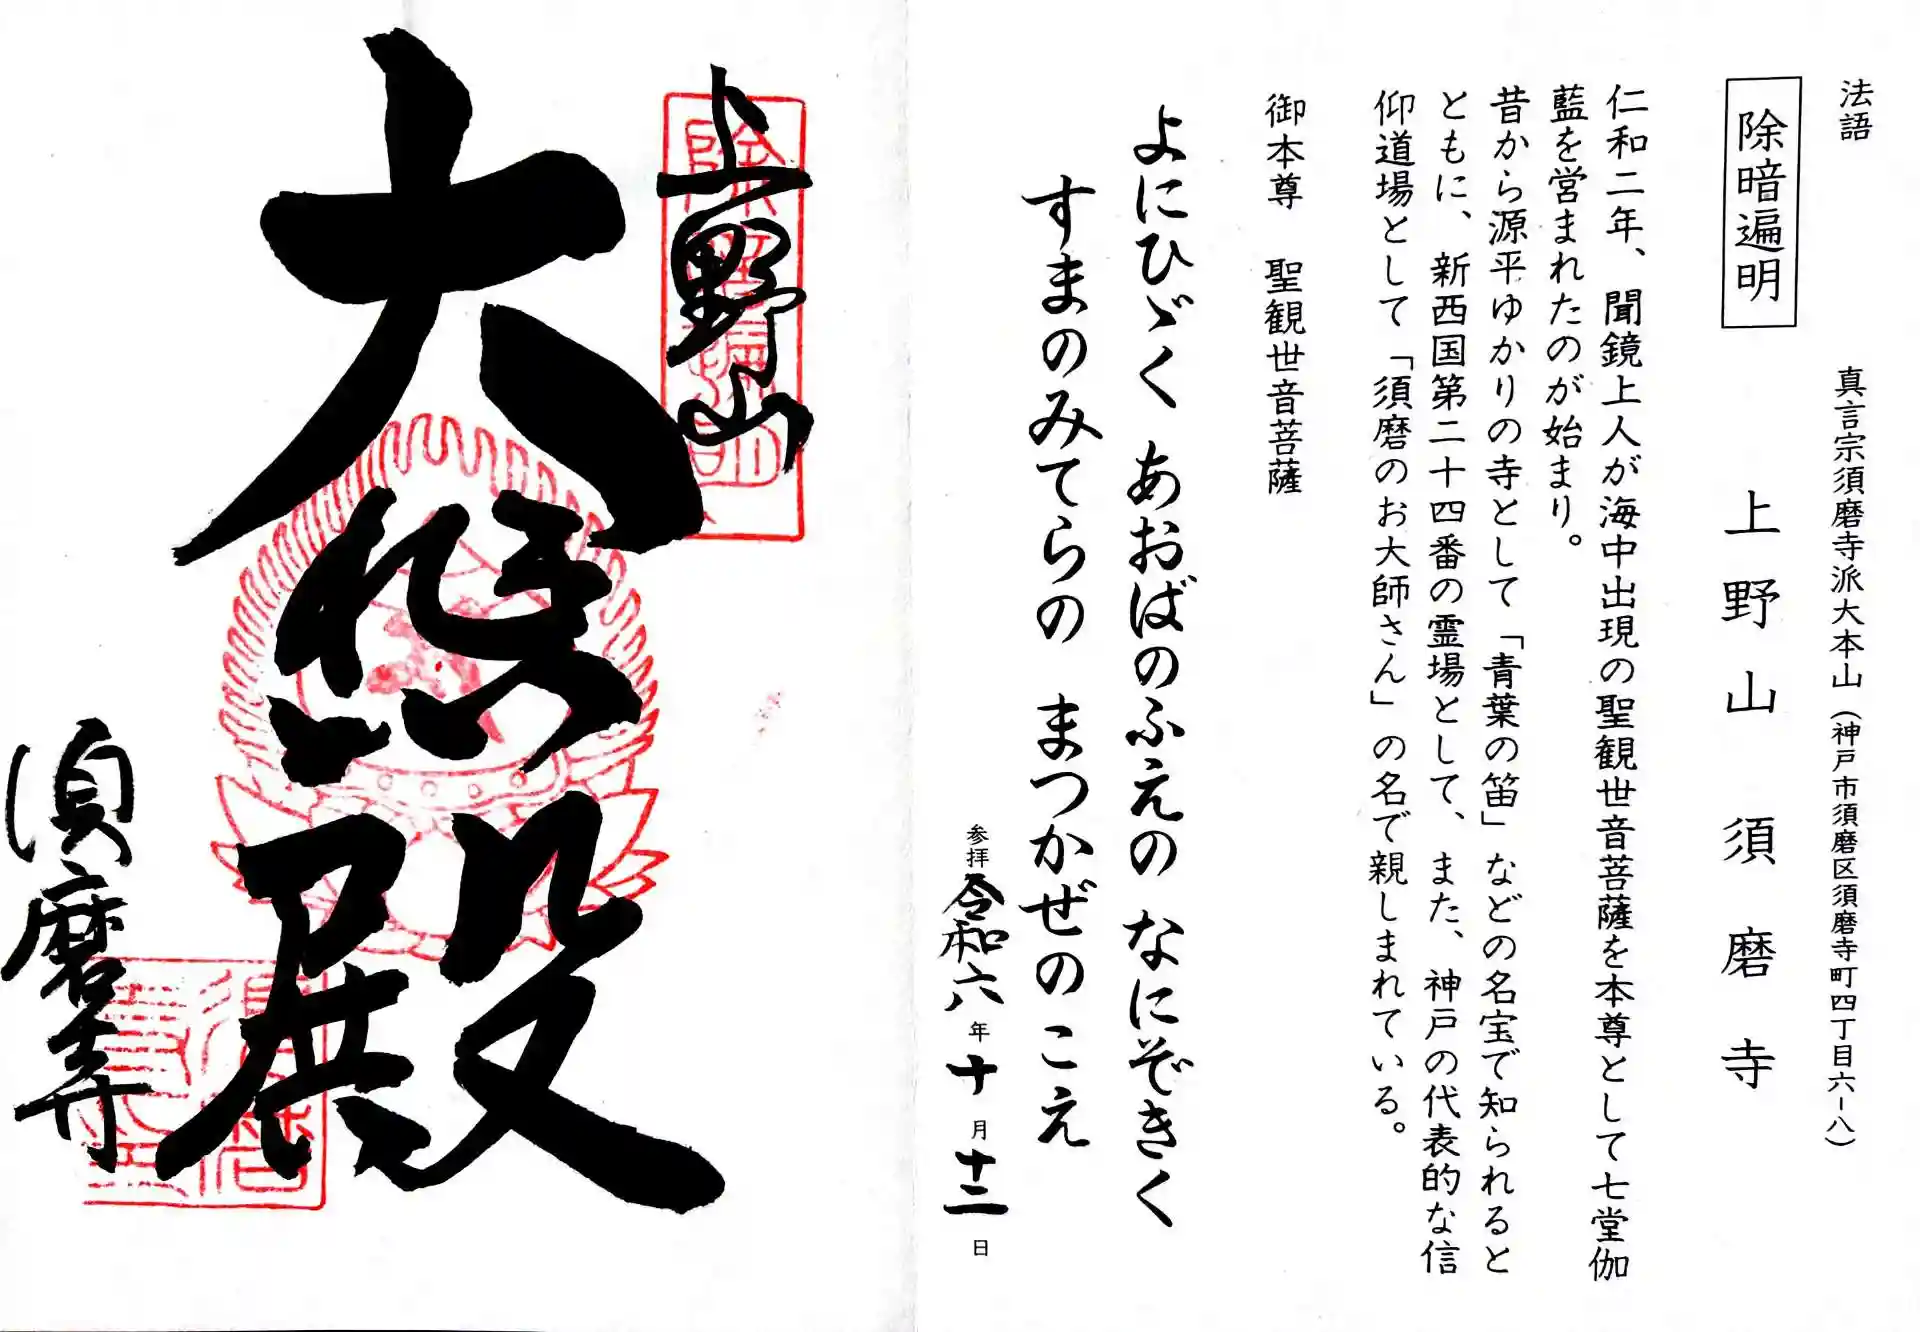 法語
真言宗須磨寺派大本山(神戸市須磨区須磨寺町四丁目六-八)
除暗遍明
上野山須磨寺
仁和二年、聞鏡上人が海中出現の聖観世音菩薩を本尊として七堂伽
藍を営まれたのが始まり。
昔から源平ゆかりの寺として「青葉の笛」などの名宝で知られると
ともに、新西国第二十四番の霊場として、また、神戸の代表的な信
仰道場として「須磨のお大師さん」の名で親しまれている。
御本尊 聖観世音菩薩
よにひゞく あおばのふえの なにぞきく
すまのみてらの まつかぜのこえ
参拝 令和六年十月十二日
上野山
除暗遍明
大悲殿
須磨寺